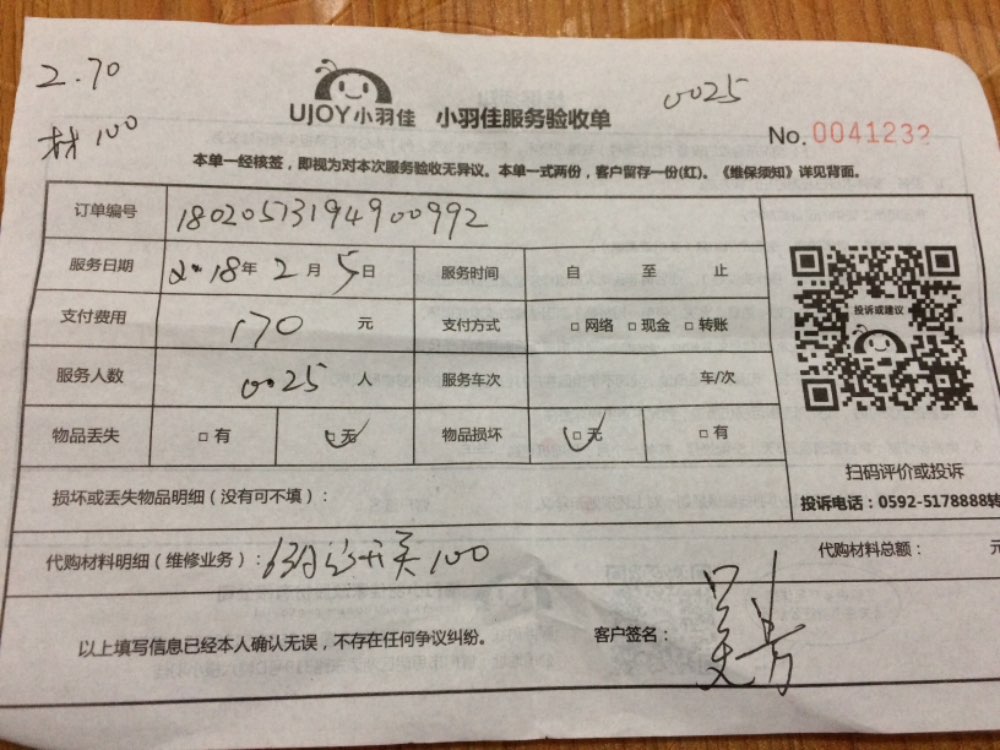 2.70
材100
UJOY小羽佳 小羽佳服务验收单
0025
No. 0041232
本单一经核签，即视为对本次服务验收无异议。本单一式两份，客户留存一份(红)。《维保须知》详见背面。
订单编号 18020513194900992
服务日期 2018年2月5日 服务时间 自 至 止
支付费用 170 元 支付方式 □网络 □现金 □转账
投诉或建议
服务人数 0025 人 服务车次 车/次
物品丢失 □有 □无 物品损坏 □无 □有
扫码评价或投诉
损坏或丢失物品明细（没有可不填）：
投诉电话：0592-5178888转
代购材料明细（维修业务）： 开关100 代购材料总额： 元
以上填写信息已经本人确认无误，不存在任何争议纠纷。 客户签名：